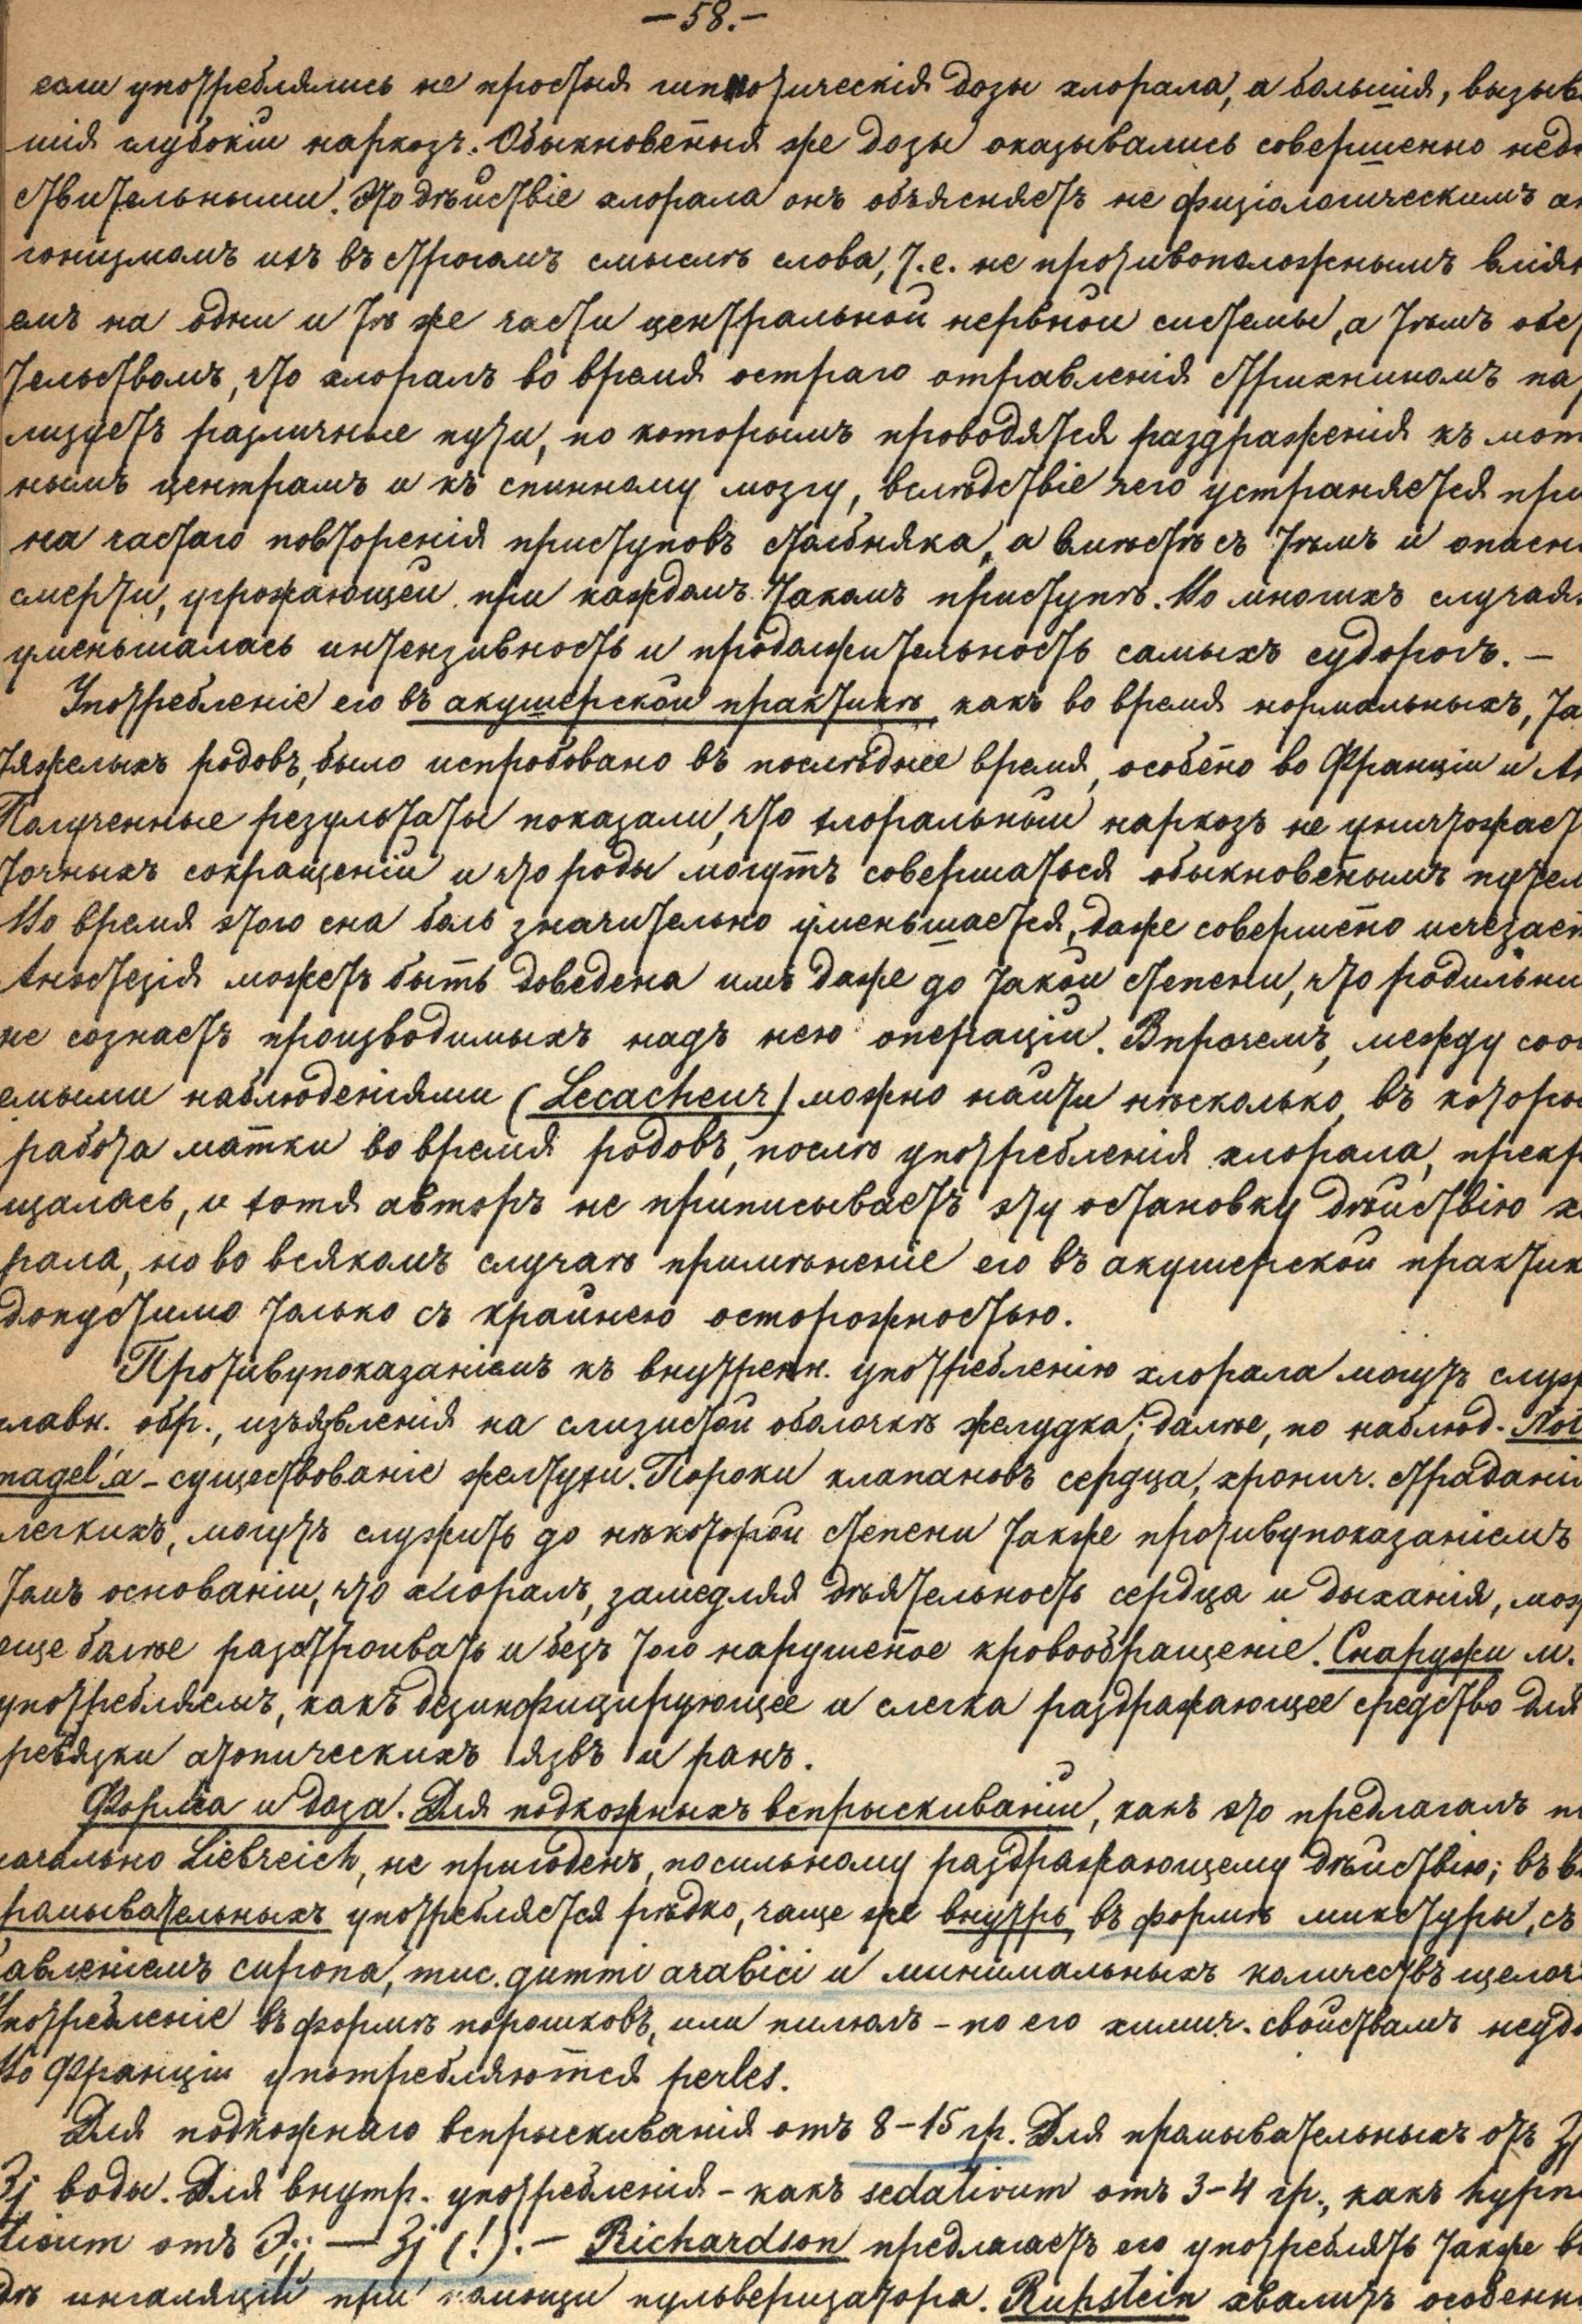 —58.—
если употреблялись не простыя гипнотическія дозы хлорала, а большія, вызыв
шія глубокій наркозъ. Обыкновен̅ыя же дозы оказывались совершенно недѣ
ствительными. Это дѣйствіе хлорала онъ объясняетъ не физіологическимъ ан
гонизмомъ ихъ въ строгомъ смыслѣ слова, т.е. не противоположнымъ вліян
емъ на одни и тѣ же части центральной нервной системы, а тѣмъ обст
тельствомъ, что хлоралъ во время остраго отравленія стрихниномъ пар
лизуетъ различные пути, по которымъ проводятся раздраженія къ мот
нымъ центрамъ и къ спинному мозгу, вслѣдствіе чего устраняется при
на частаго повторенія приступовъ столбняка, а вмѣстѣ съ тѣмъ и опасн
смерти, угрожающей при каждомъ такомъ приступѣ. Во многихъ случая
уменьшалась интензивность и продолжительность самыхъ судорогъ. —
Употребленіе его въ акушерской практикѣ, какъ во время нормальныхъ, та
тяжелыхъ родовъ, было испробовано въ послѣднее время, особен̅о во Франціи и Ан
Полученные результаты показали, что хлоральный наркозъ не уничтожает
точныхъ сокращеній и что роды могутъ совершаться обыкновен̅ымъ путем
Во время этого сна боль значительно уменьшается, даже совершен̅о исчезает
Анэстезія можетъ быть доведена имъ даже до такой степени, что родильни
не сознаетъ производимыхъ надъ нею операцій. Впрочемъ, между сооб
емыми наблюденіями (Lecacheur) можно найти нѣсколько, въ которы
работа матки во время родовъ, послѣ употребленія хлорала, прекр
щалась, и хотя авторъ не приписываетъ эту остановку дѣйствію хл
рала, но во всякомъ случаѣ примѣненіе его въ акушерской практик
допустимо только съ крайнею осторожностью.
Противупоказаніемъ къ внутренн. употребленію хлорала могутъ служ
главн. обр., изъязвленія на слизистой оболочкѣ желудка; далѣе, по наблюд. Not
nagel'я – существованіе желтухи. Пороки клапановъ сердца, хронич. страдані
легкихъ, могутъ служить до нѣкоторой степени также противупоказаніемъ
томъ основаніи, что хлоралъ, замедляя дѣятельность сердца и дыханія, мож
еще болѣе разстроивать и безъ того нарушен̅ое кровообращеніе. Снаружи м.
употребляемъ, какъ дезинфицирующее и слегка раздражающее средство для
ревязки атоническихъ язвъ и ранъ.
Форма и доза. Для подкожныхъ вспрыскиваній, какъ это предлагалъ п
начально Liebreich, не пригоденъ, по сильному раздражающему дѣйствію; въ
рамывательныхъ употребляется рѣдко, чаще же внутрь, въ формѣ микстуры, съ
авленіемъ сиропа, muc. gummi arabici и минимальныхъ количествъ щелоч
Употребленіе въ формѣ порошковъ, или пилюль – по его химич. свойствамъ неудо
Во Франціи употребляются perles.
Для подкожнаго вспрыскиванія отъ 8–15 гр. Для прамывательныхъ отъ ʒj
ʒj воды. Для внутр. употребленія – какъ sedativum отъ 3–4 гр., какъ hypn
ticum отъ ℈j — ʒj (!). — Richardson предлагаетъ его употреблять также в
дѣ ингаляцій при помощи пульверизатора. Rupstein хвалитъ особенн